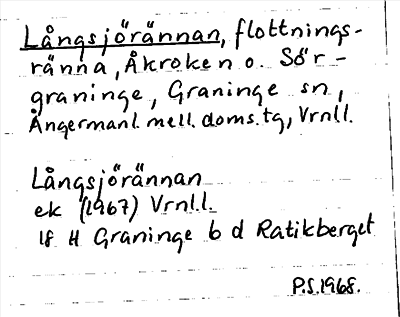 Långsjörännan, flottnings-
ränna, Åkroken o. Sör-
graninge, Graninge sn,
Ångermanl. mell. doms.tg, Vrnl.l.
Långsjörännan
ek (1967) Vrnl.l.
18 H Graninge b d Ratikberget
P.S. 1968.